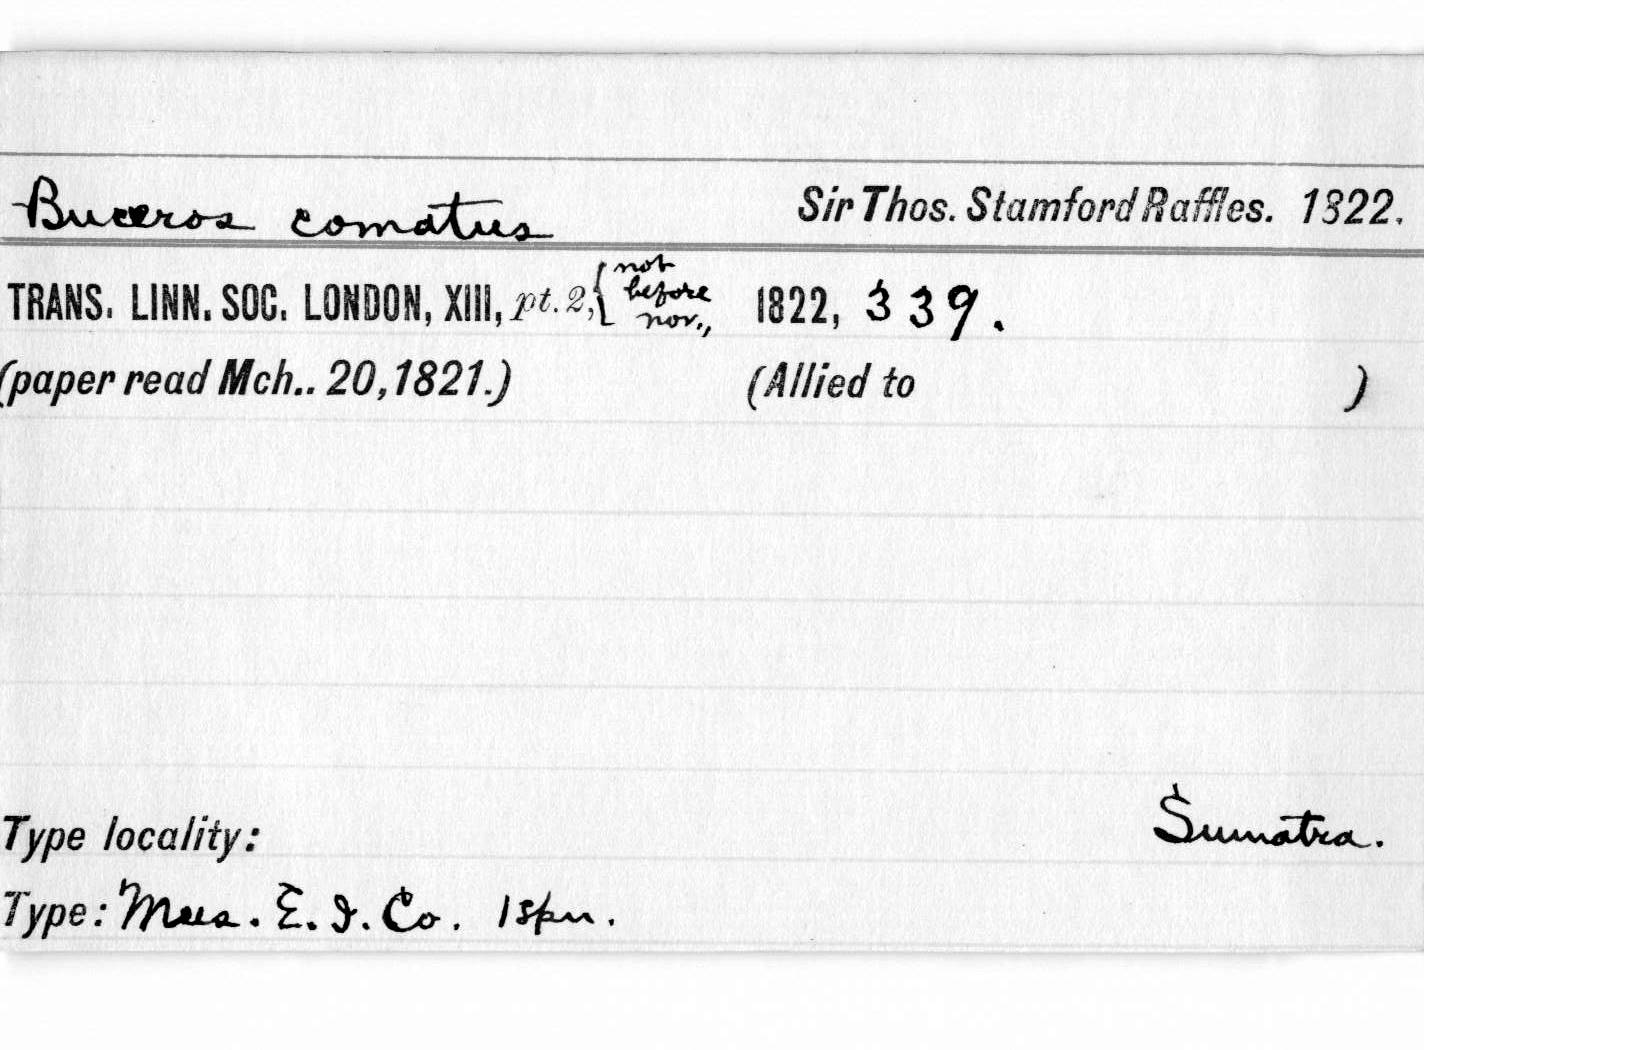 Buceros comatus Sir Thos. Stamford Raffles. 1822.
TRANS. LINN. SOC. LONDON, XIII, pt. 2, { not before nov., 1822, 339.
(paper read Mch.. 20, 1821.) (Allied to )
Type locality: Sumatra.
Type: Mus. E. I. Co. 1 spn.